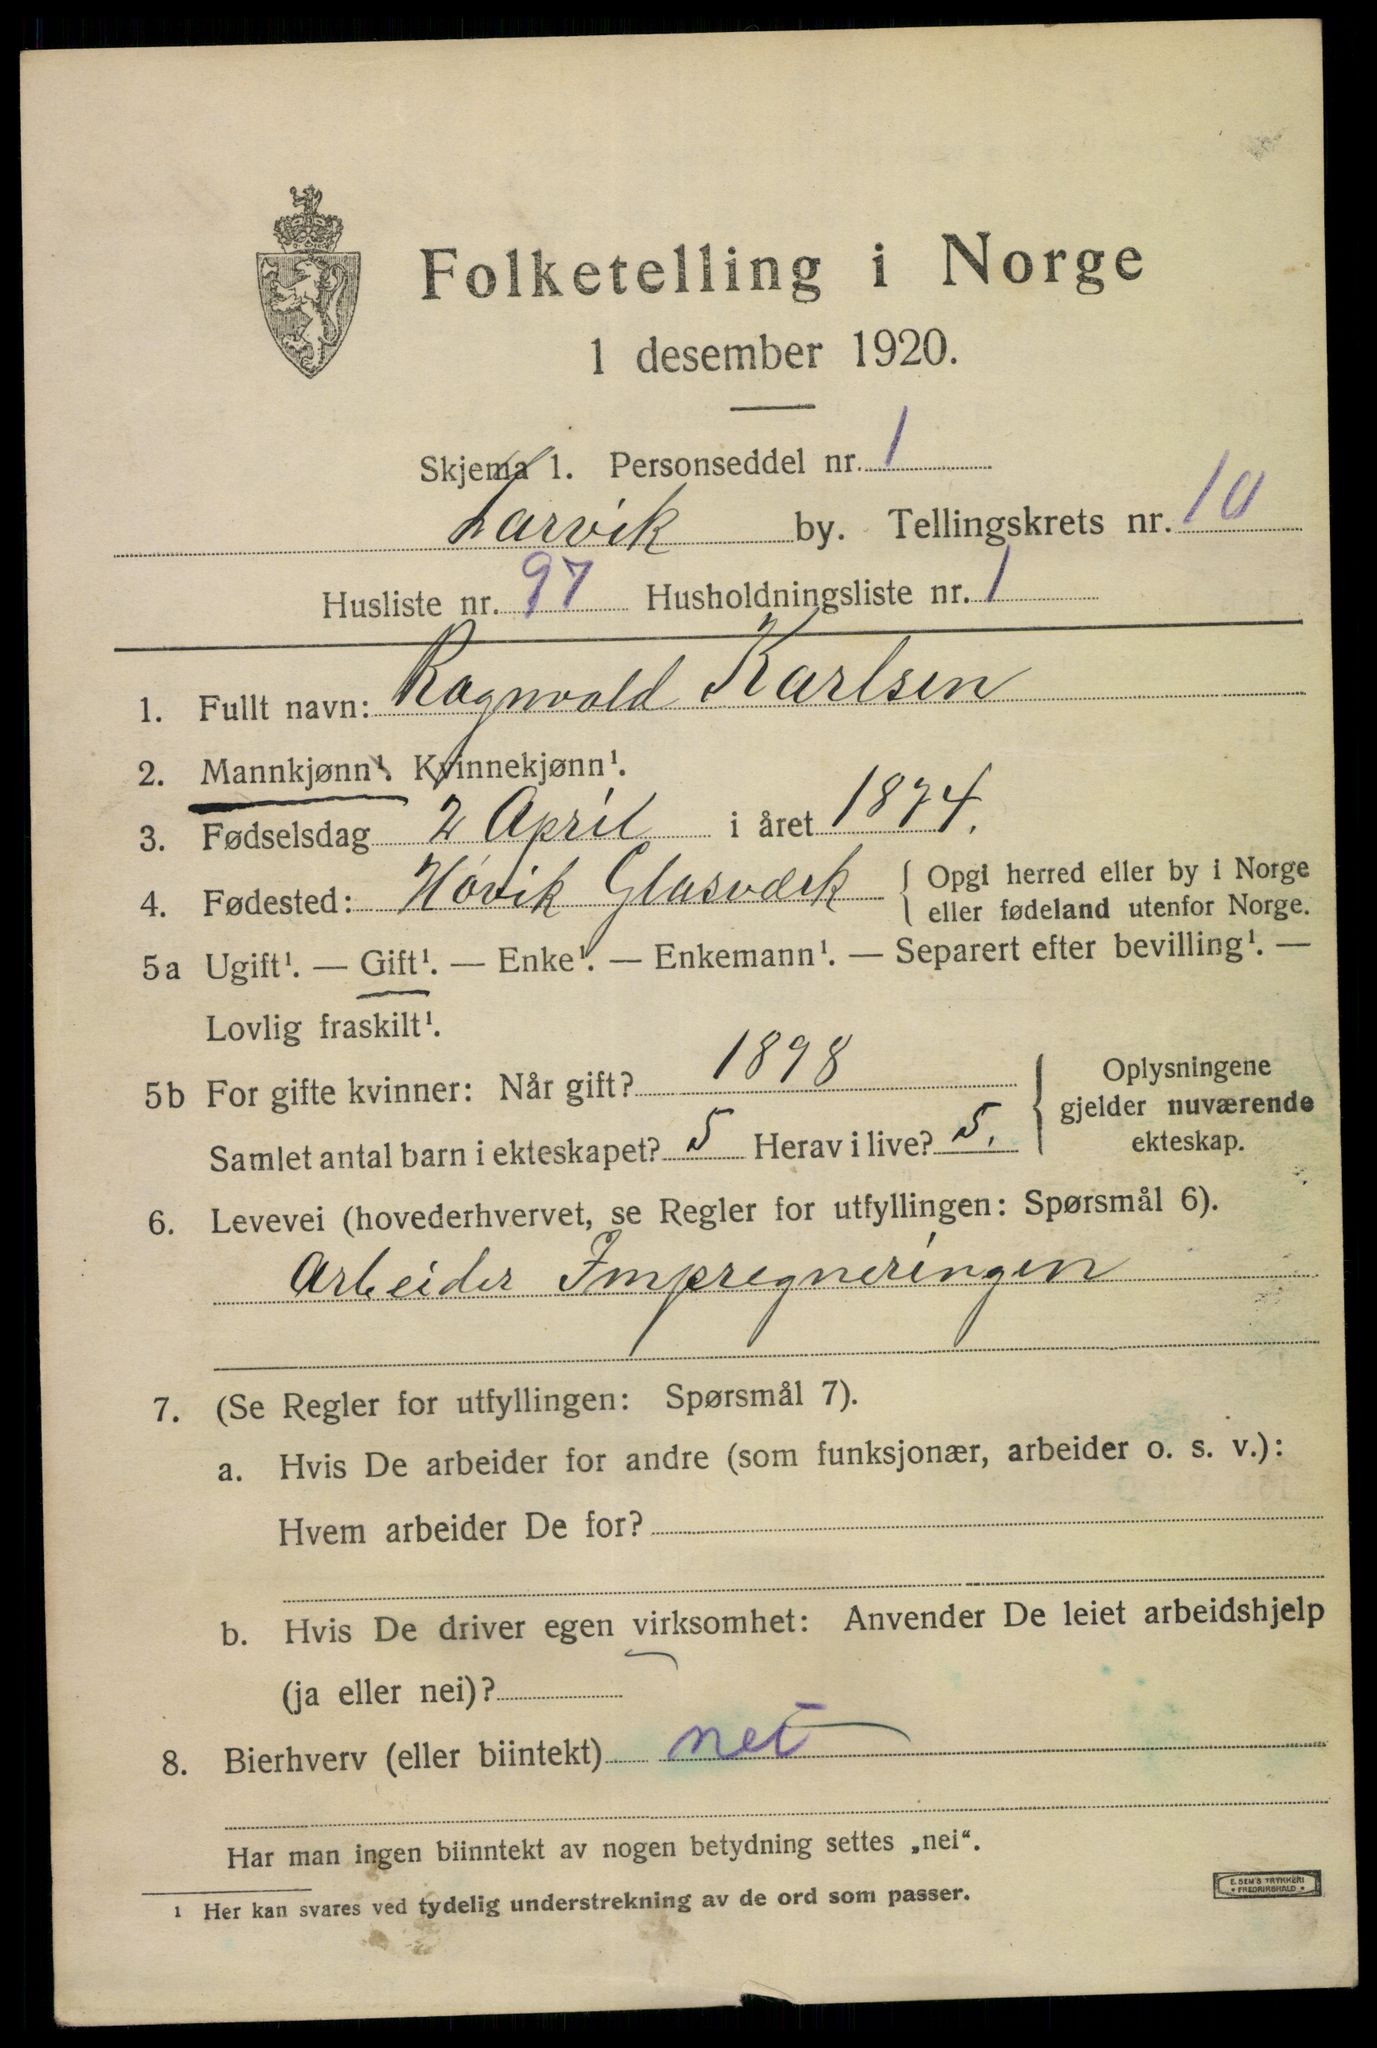 Folketelling i Norge
1 desember 1920.
Skjema 1. Personseddel nr. 1
Larvik by. Tellingskrets nr. 10
Husliste nr. 97 Husholdningsliste nr. 1
1. Fullt navn: Ragnvald Karlsen
2. Mannkjønn¹. Kvinnekjønn¹.
3. Fødselsdag 2 April i året 1874.
4. Fødested: Høvik Glasværk { Opgi herred eller by i Norge
eller fødeland utenfor Norge.
5a Ugift¹. — Gift¹. — Enke¹. — Enkemann¹. — Separert efter bevilling¹. —
Lovlig fraskilt¹.
5b For gifte kvinner: Når gift? 1898
Samlet antal barn i ekteskapet? 5 Herav i live? 5.
{ Oplysningene
gjelder nuværende
ekteskap.
6. Levevei (hovederhvervet, se Regler for utfyllingen: Spørsmål 6).
Arbeider Impregneringen
7. (Se Regler for utfyllingen: Spørsmål 7).
a. Hvis De arbeider for andre (som funksjonær, arbeider o. s. v.):
Hvem arbeider De for?
b. Hvis De driver egen virksomhet: Anvender De leiet arbeidshjelp
(ja eller nei)?
8. Bierhverv (eller biintekt) nei
Har man ingen biinntekt av nogen betydning settes „nei“.
¹ Her kan svares ved tydelig understrekning av de ord som passer.
E. SEM'S TRYKKERI
* FREDRIKSHALD *